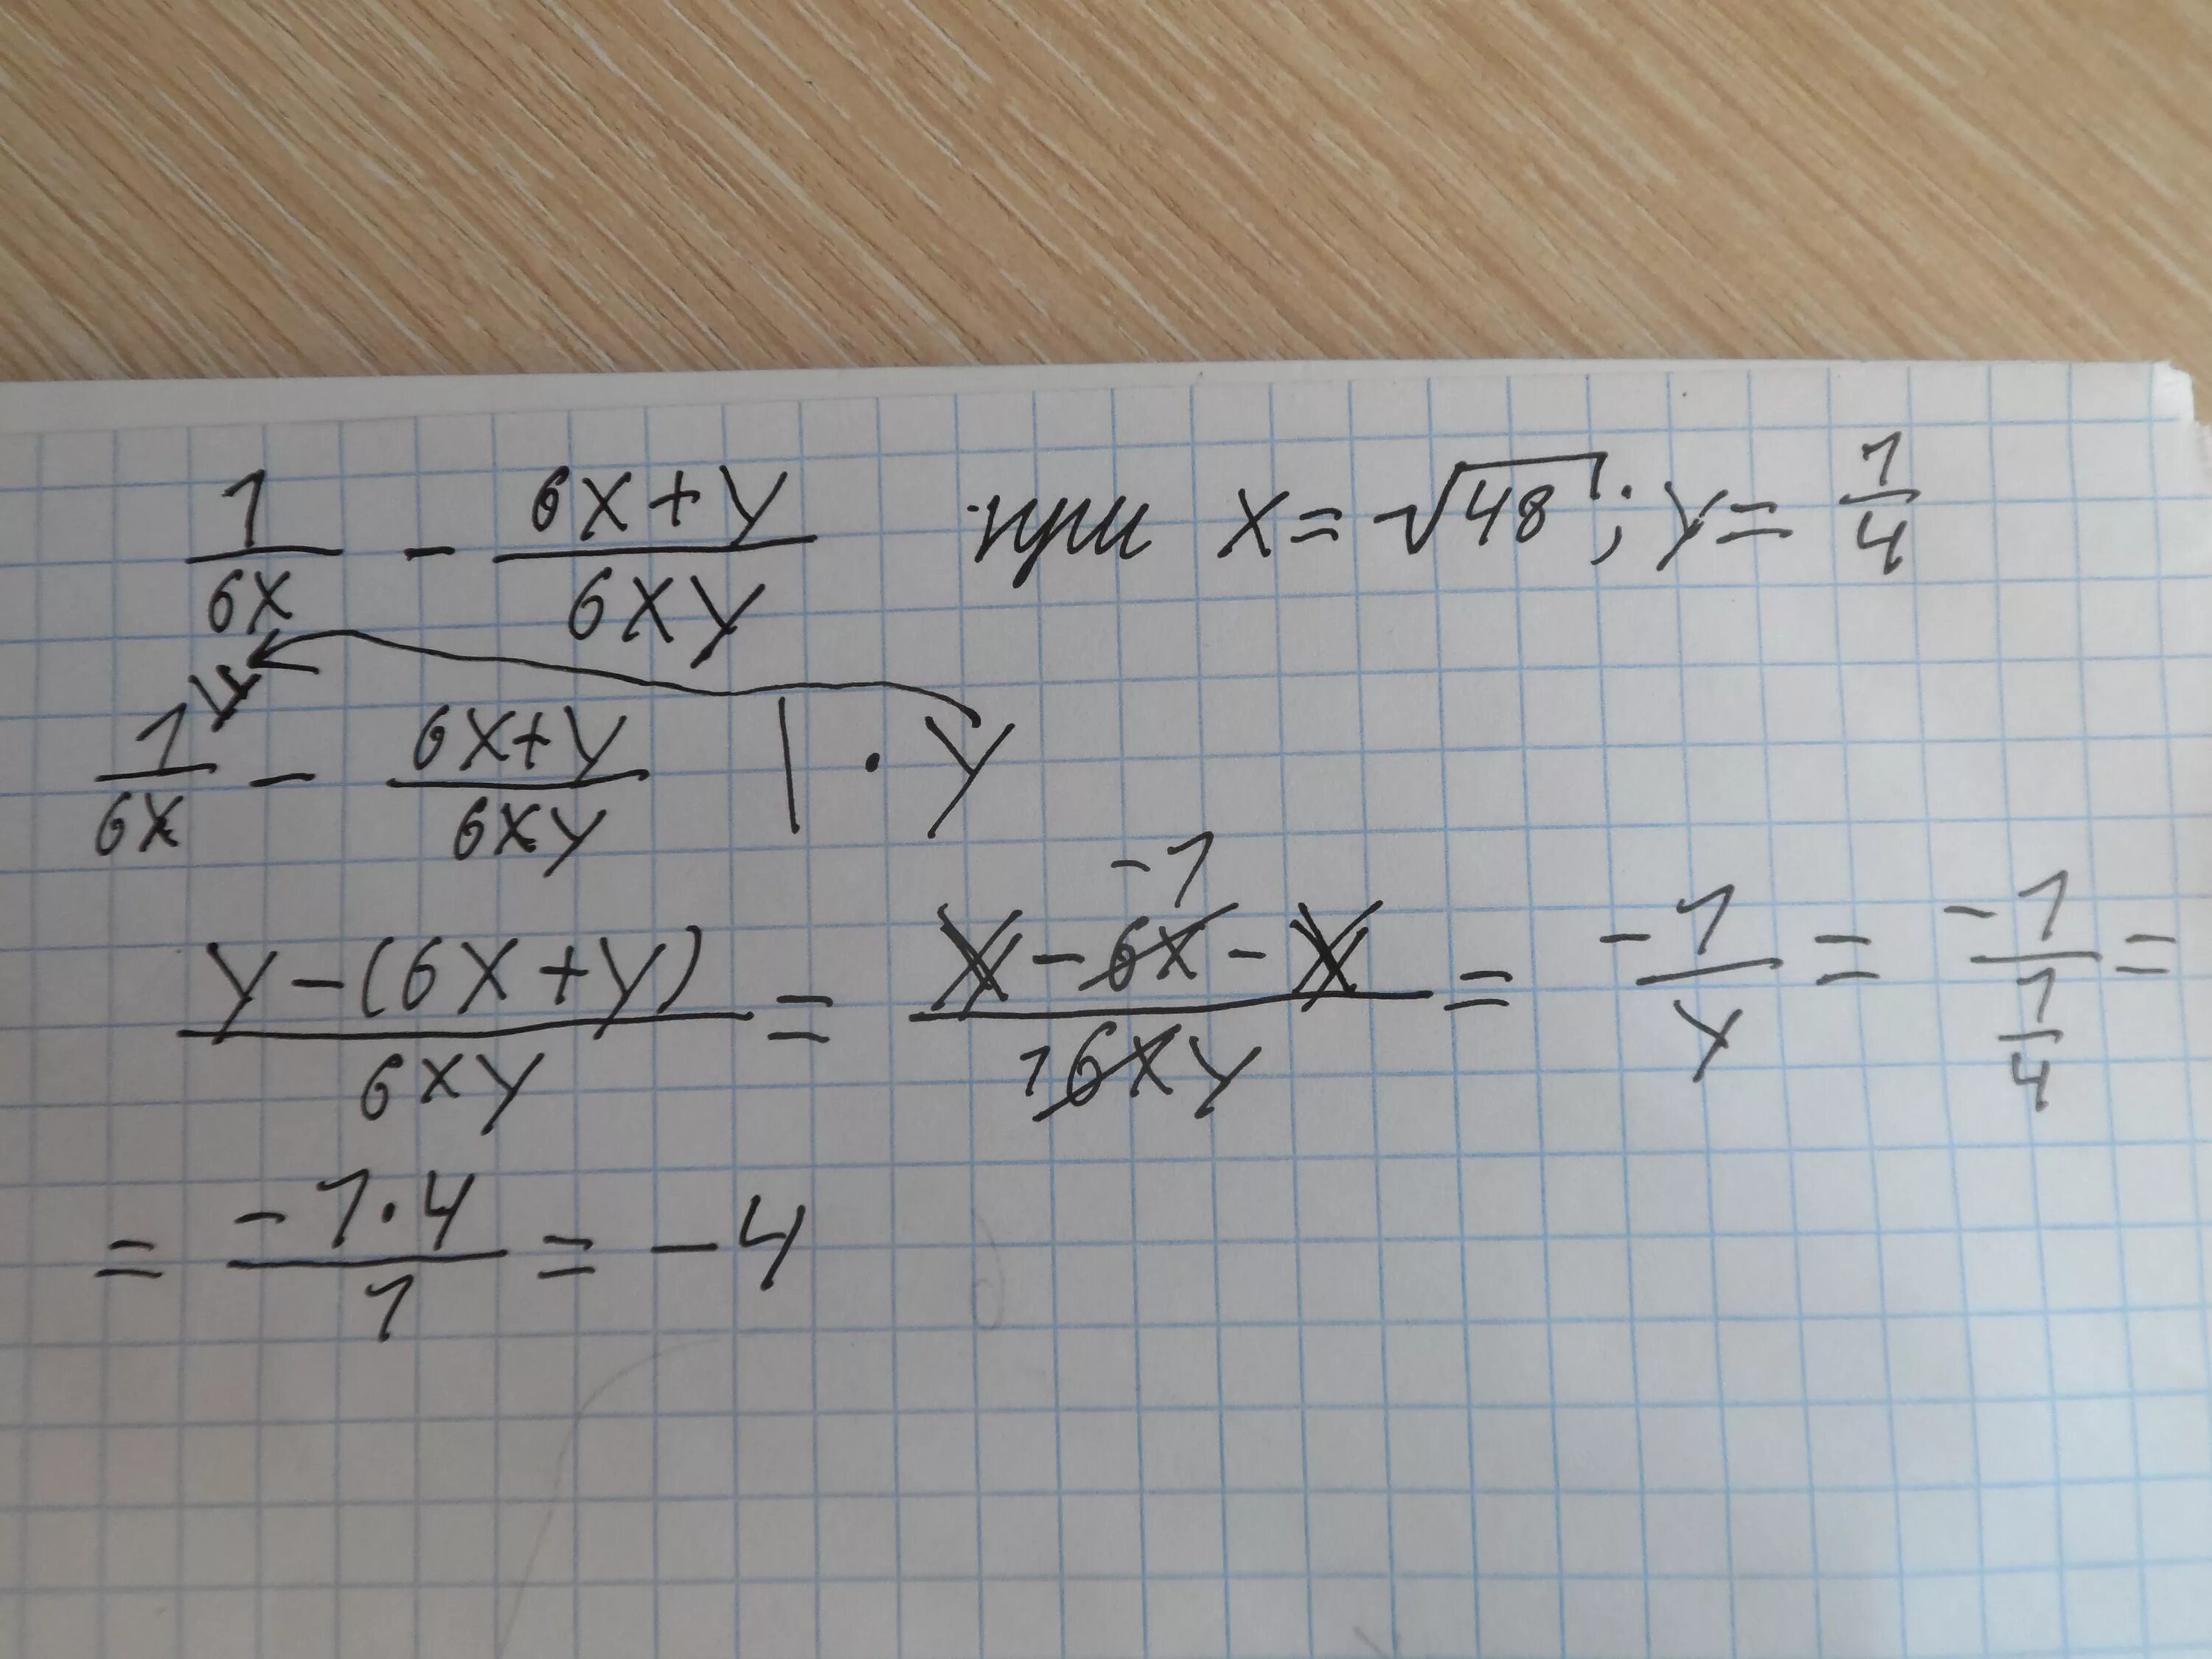 1/6x - 6x+y/6xy при x = √48; y = 1/4
1^y/6x - 6x+y/6xy | · y
y-(6x+y)/6xy = y-6x-y/6xy = -1/y = -1/1/4 =
= -1·4/1 = -4